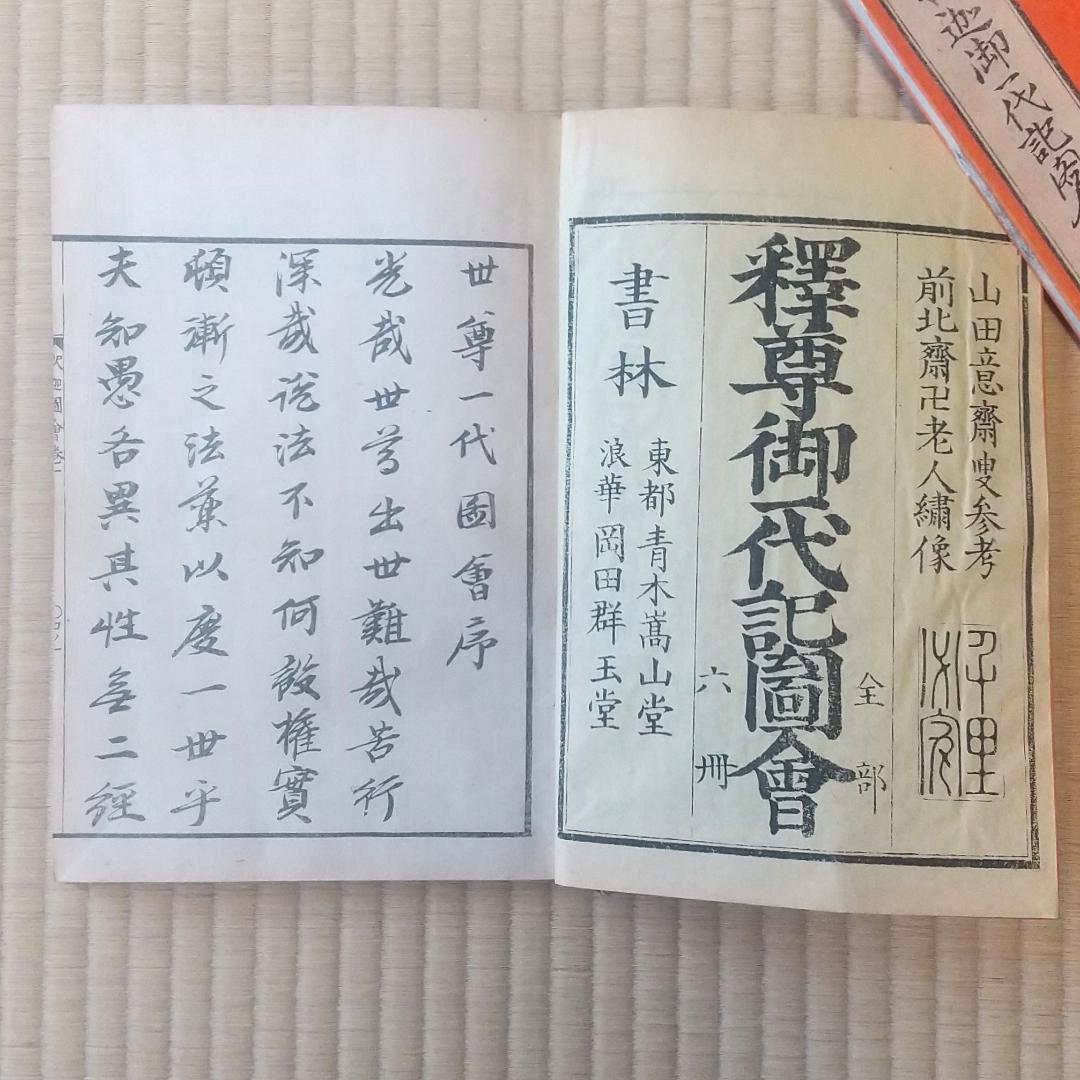 迦御一代記圖
山田意齋叟参考
前北齋卍老人繡像
全部
釋尊御一代記圖會
六冊
書林
東都青木嵩山堂
浪華岡田群玉堂
世尊一代圖會序
光哉世尊出世難哉苦行
深哉說法不知何設權實
頓漸之法葉以度一世乎
夫知愚各異其性無二經